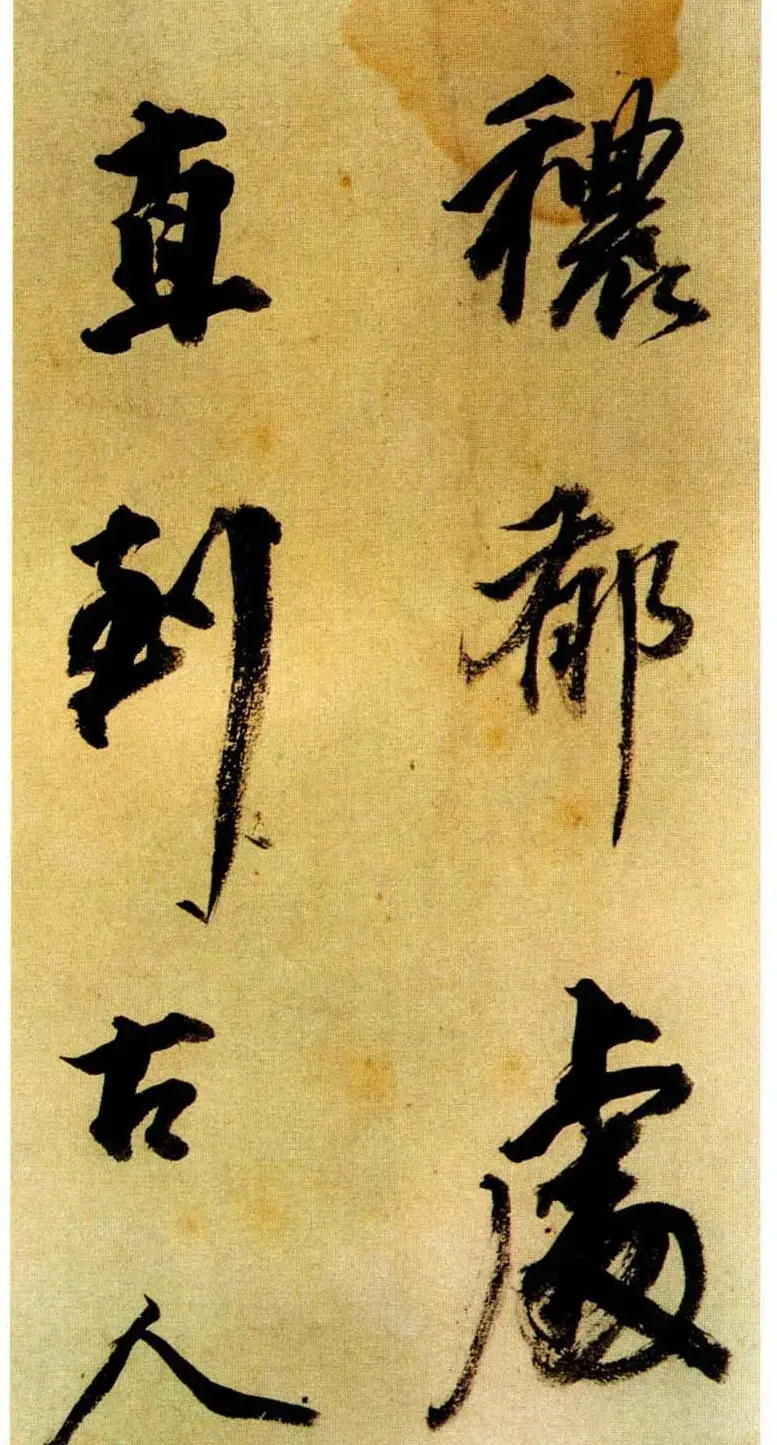 穠郁處
直到古人